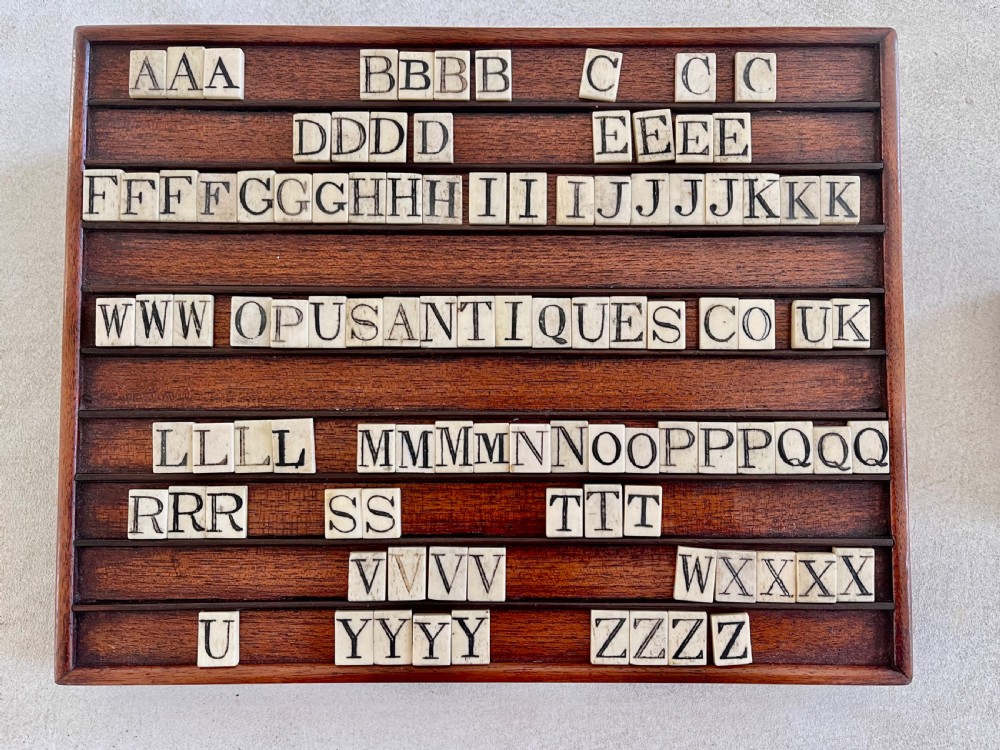 AAA BBBB C C C
DDDD EEEE
FFFFGGGHHHIIIJJJJKKK
WWW OPUSANTIQUES CO UK
LLLL MMMMNNOOPPPQQQ
RRR SS TTT
VVVV WXXXX
U YYYY ZZZZ